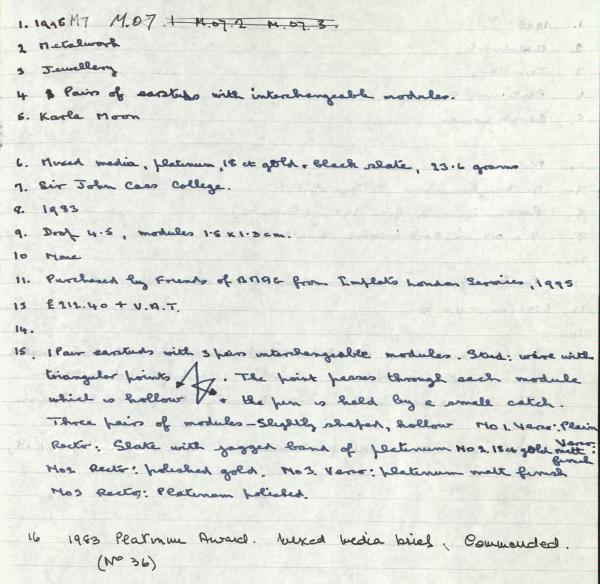 1. 1995 M7 M.07.1 M.07.2 M.07.3.
2 Metalwork
3 Jewellery
4 3 Pairs of earstuds with interchangeable modules.
5. Karla Moon
6. Mixed media, platinum, 18 ct gold, black slate, 23.6 grams
7. Sir John Cass College.
8. 1983
9. Drop 4.5, modules 1.5 x 1.3 cm.
10 None
11. Purchased by Friends of BMAG from Implats London Services, 1995
13 £212.40 + V.A.T.
14.
15. 1 Pair earstuds with 3 pairs interchangeable modules. Stud: wire with
triangular points. The point passes through each module
which is hollow & the pin is held by a small catch.
Three pairs of modules - Slightly shaped, hollow No 1. Verso: Plain
Recto: Slate with jagged band of platinum No 2. 18ct gold Verso: matt finish
No2 Recto: polished gold. No3. Verso: platinum matt finish
No3 Recto: Platinum polished.
16 1983 Platinum Award. Mixed Media brief, Commended.
(No 36)